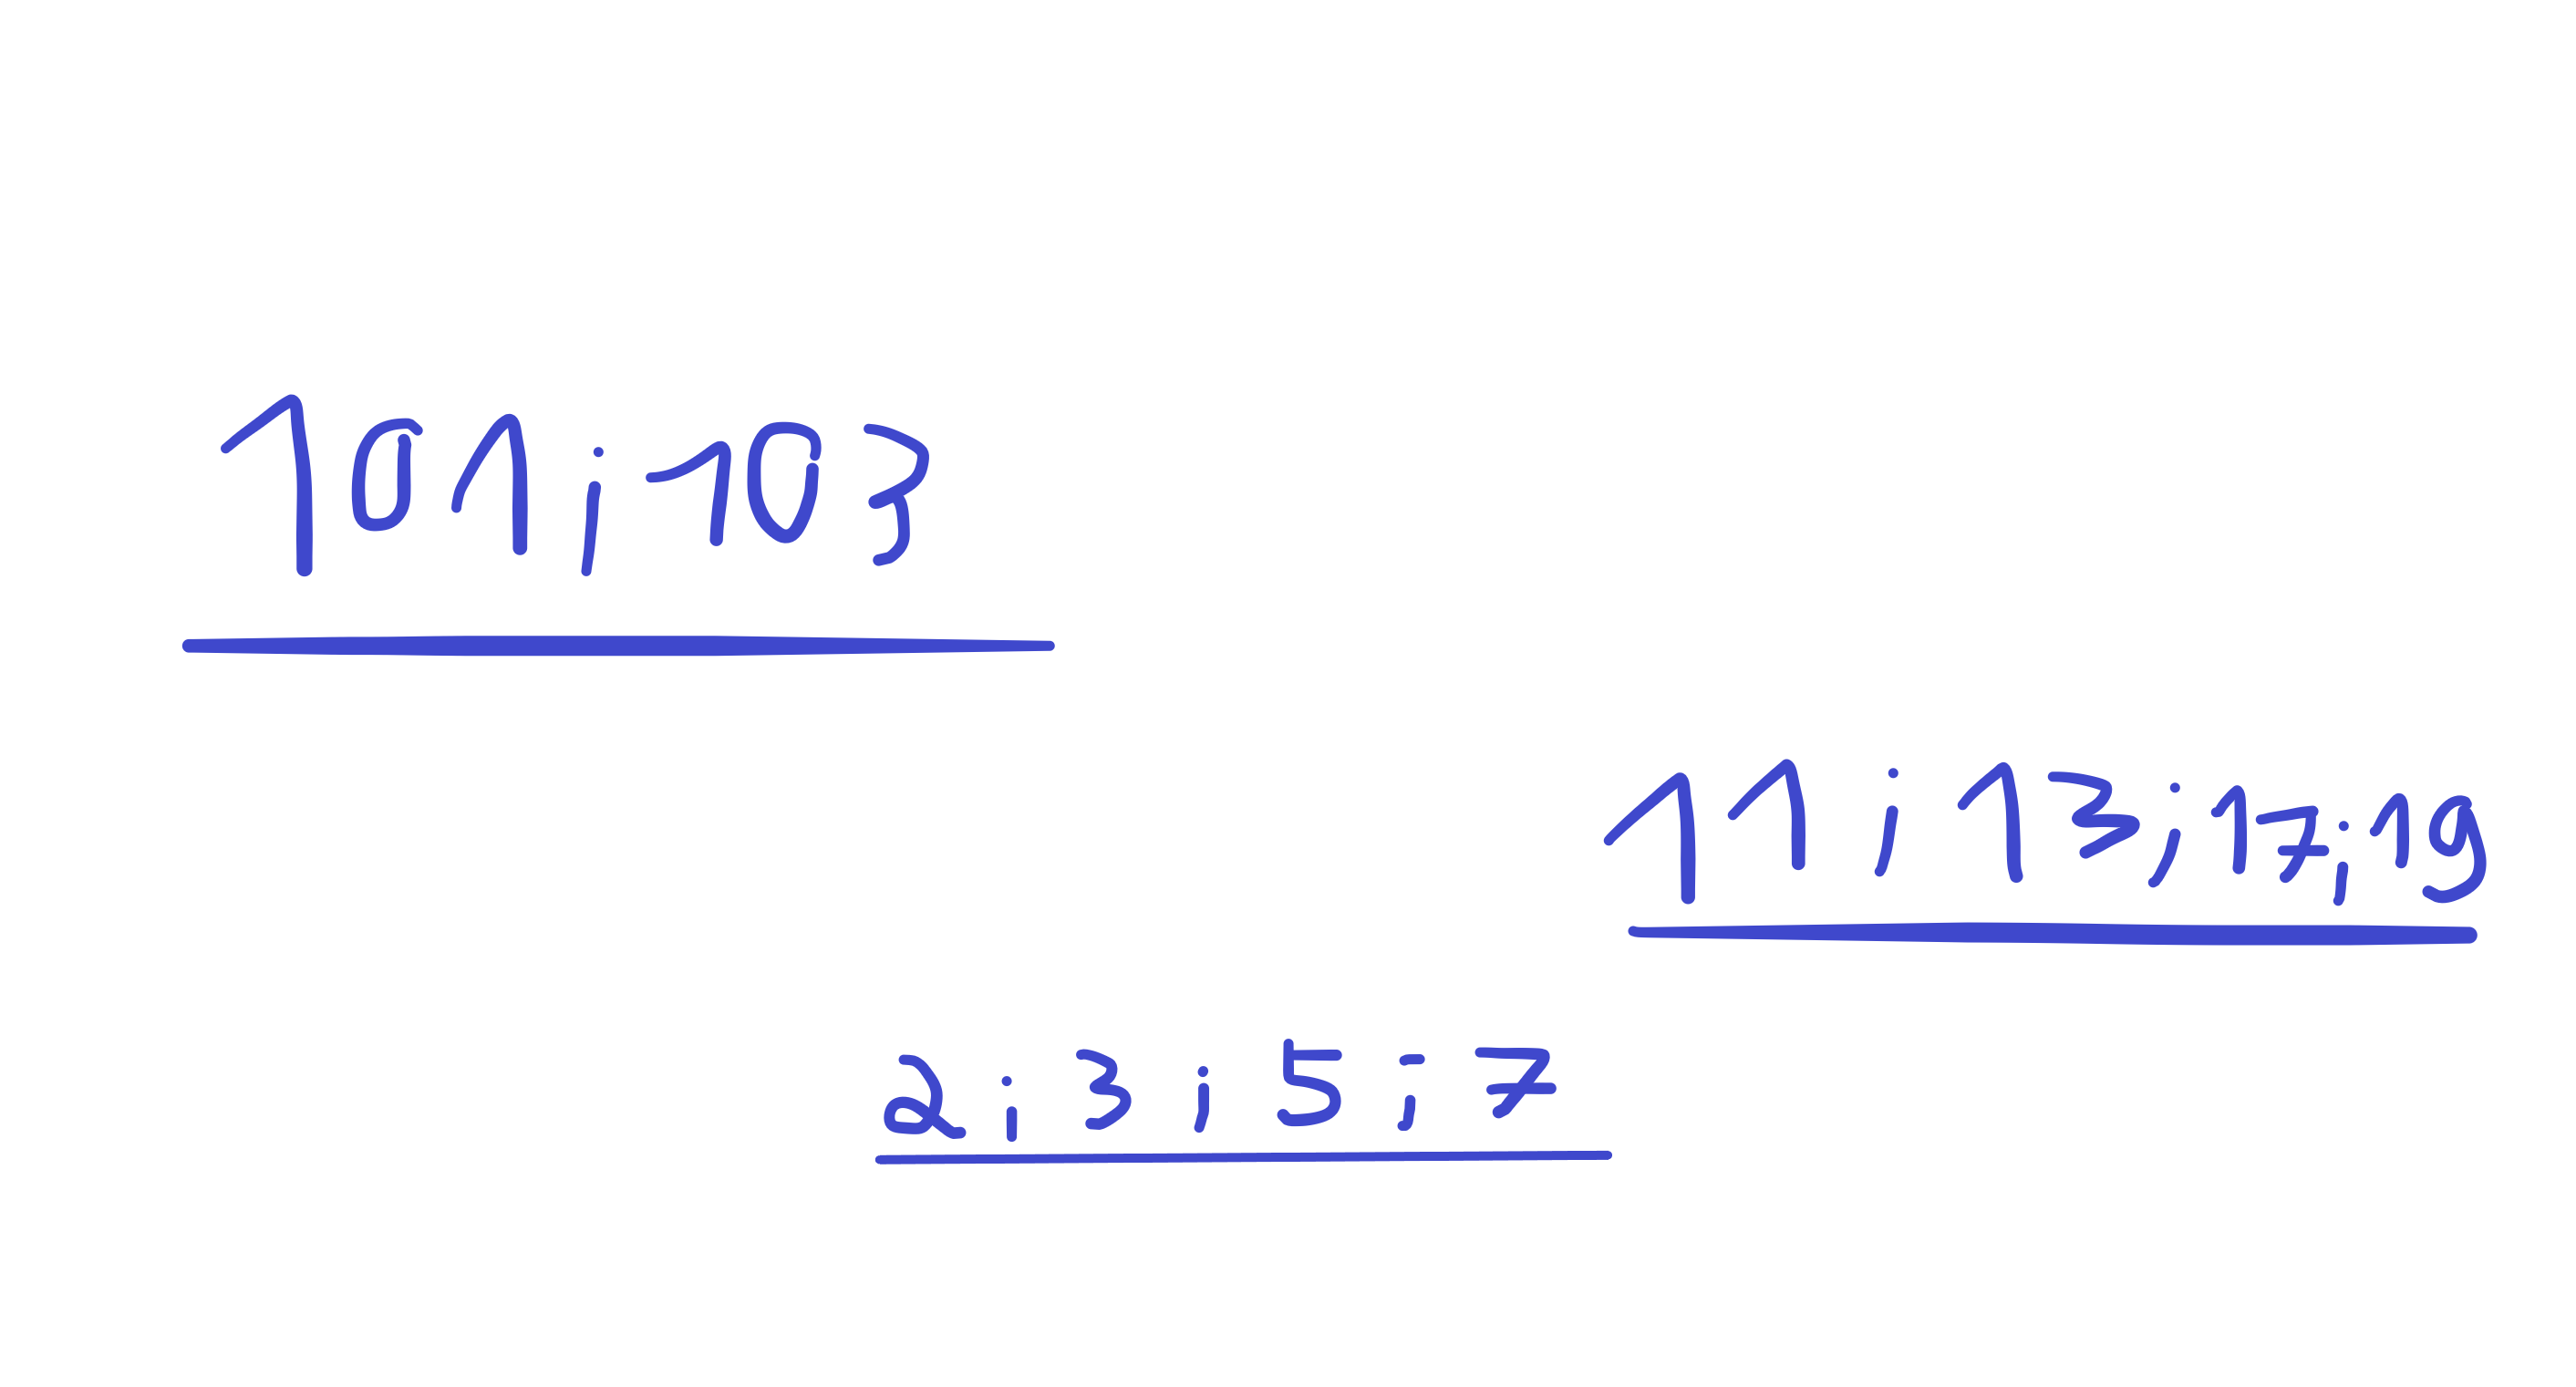 101;103
11;13;17;19
2;3;5;7